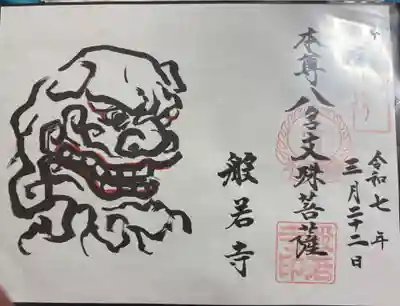 本尊八字文珠菩薩
令和七年
三月二十二日
般若寺